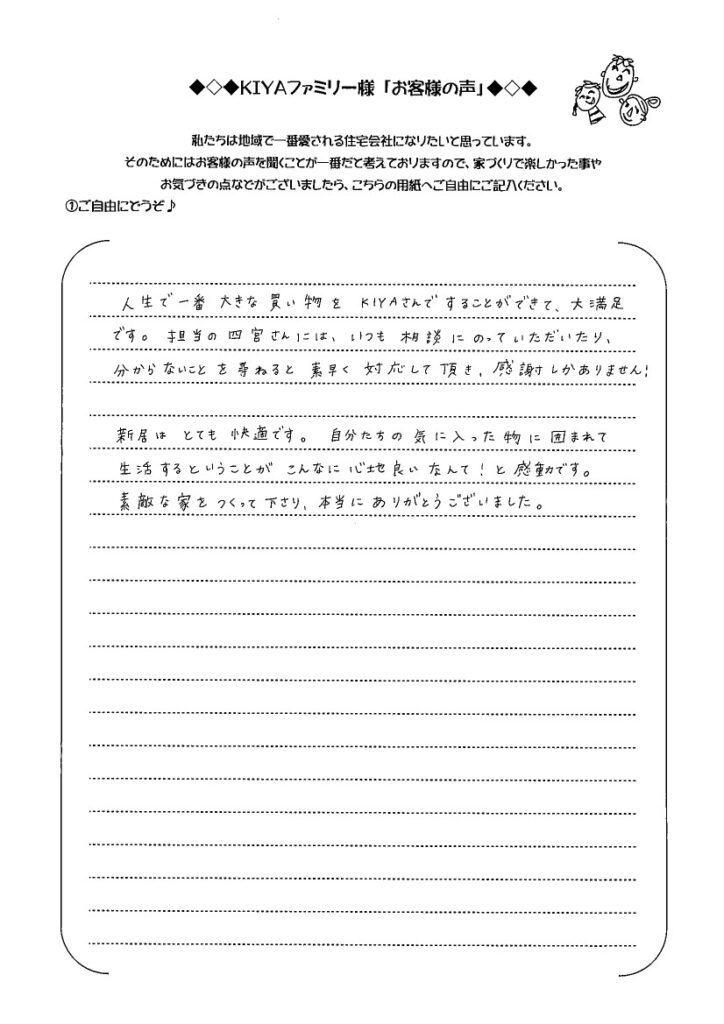 ◆◇◆KIYAファミリー様「お客様の声」◆◇◆
私たちは地域で一番愛される住宅会社になりたいと思っています。
そのためにはお客様の声を聞くことが一番だと考えておりますので、家づくりで楽しかった事や
お気づきの点などがございましたら、こちらの用紙へご自由にご記入ください。
①ご自由にどうぞ♪
人生で一番大きな買い物をKIYAさんですることができて、大満足
です。担当の四宮さんには、いつも相談にのっていただいたり、
分からないことを尋ねると素早く対応して頂き、感謝しかありません!
新居はとても快適です。自分たちの気に入った物に囲まれて
生活するということがこんなに心地良いなんて!と感動です。
素敵な家をつくって下さり、本当にありがとうございました。